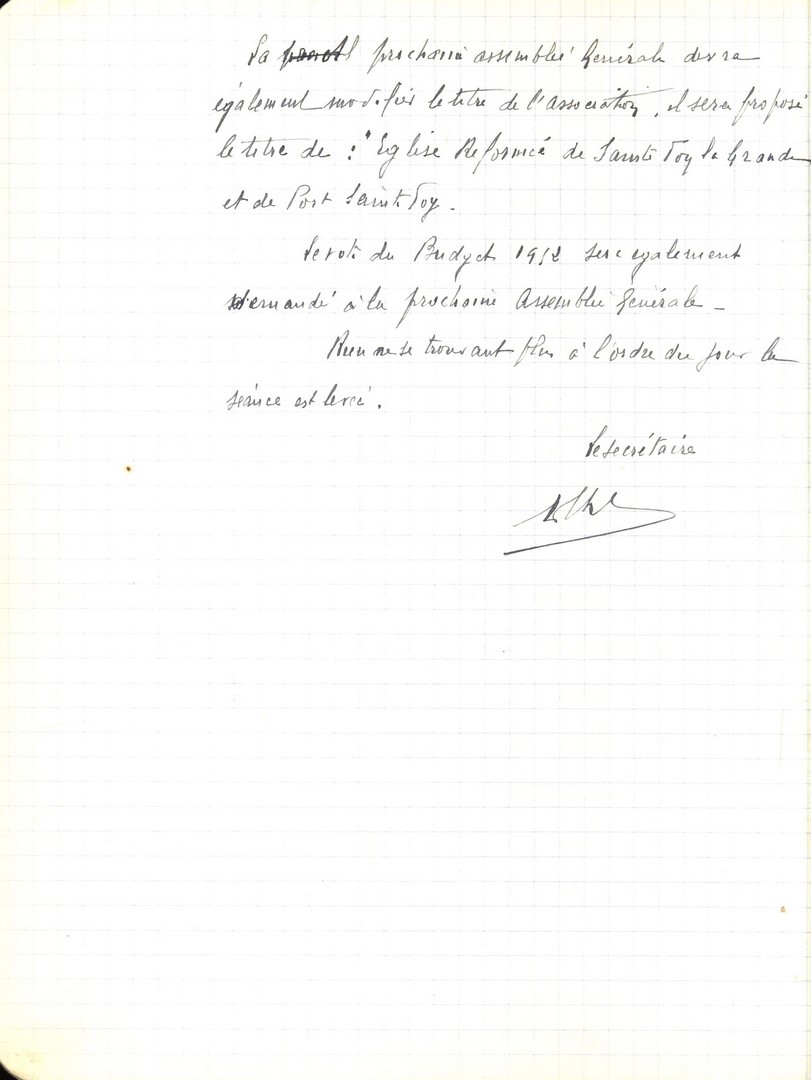 La prochaine assemblée Générale devra
également modifier le titre de l'association, il sera proposé
le titre de : "Eglise Réformée de Sainte Foy la Grande
et de Port Sainte Foy.
Le vote du Budget 1952 sera également
demandé à la prochaine Assemblée Générale -
Rien ne se trouvant plus à l'ordre du jour la
séance est levée.
Le secrétaire